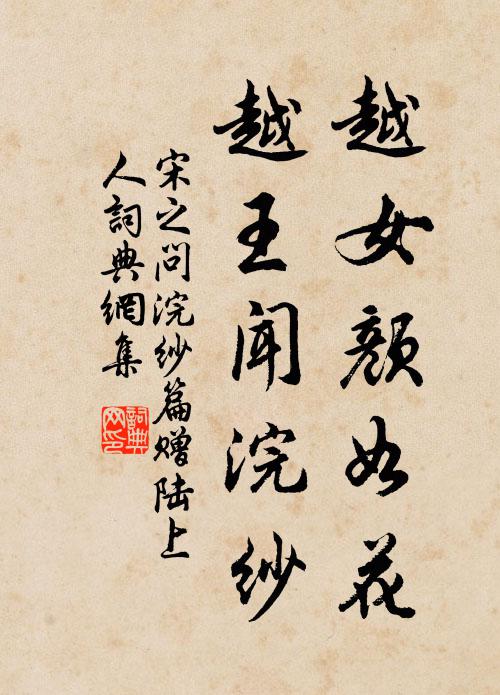 越女颜如花
越王闻浣纱
宋之问浣纱篇赠陆上
人詞典網集
詞典
网印